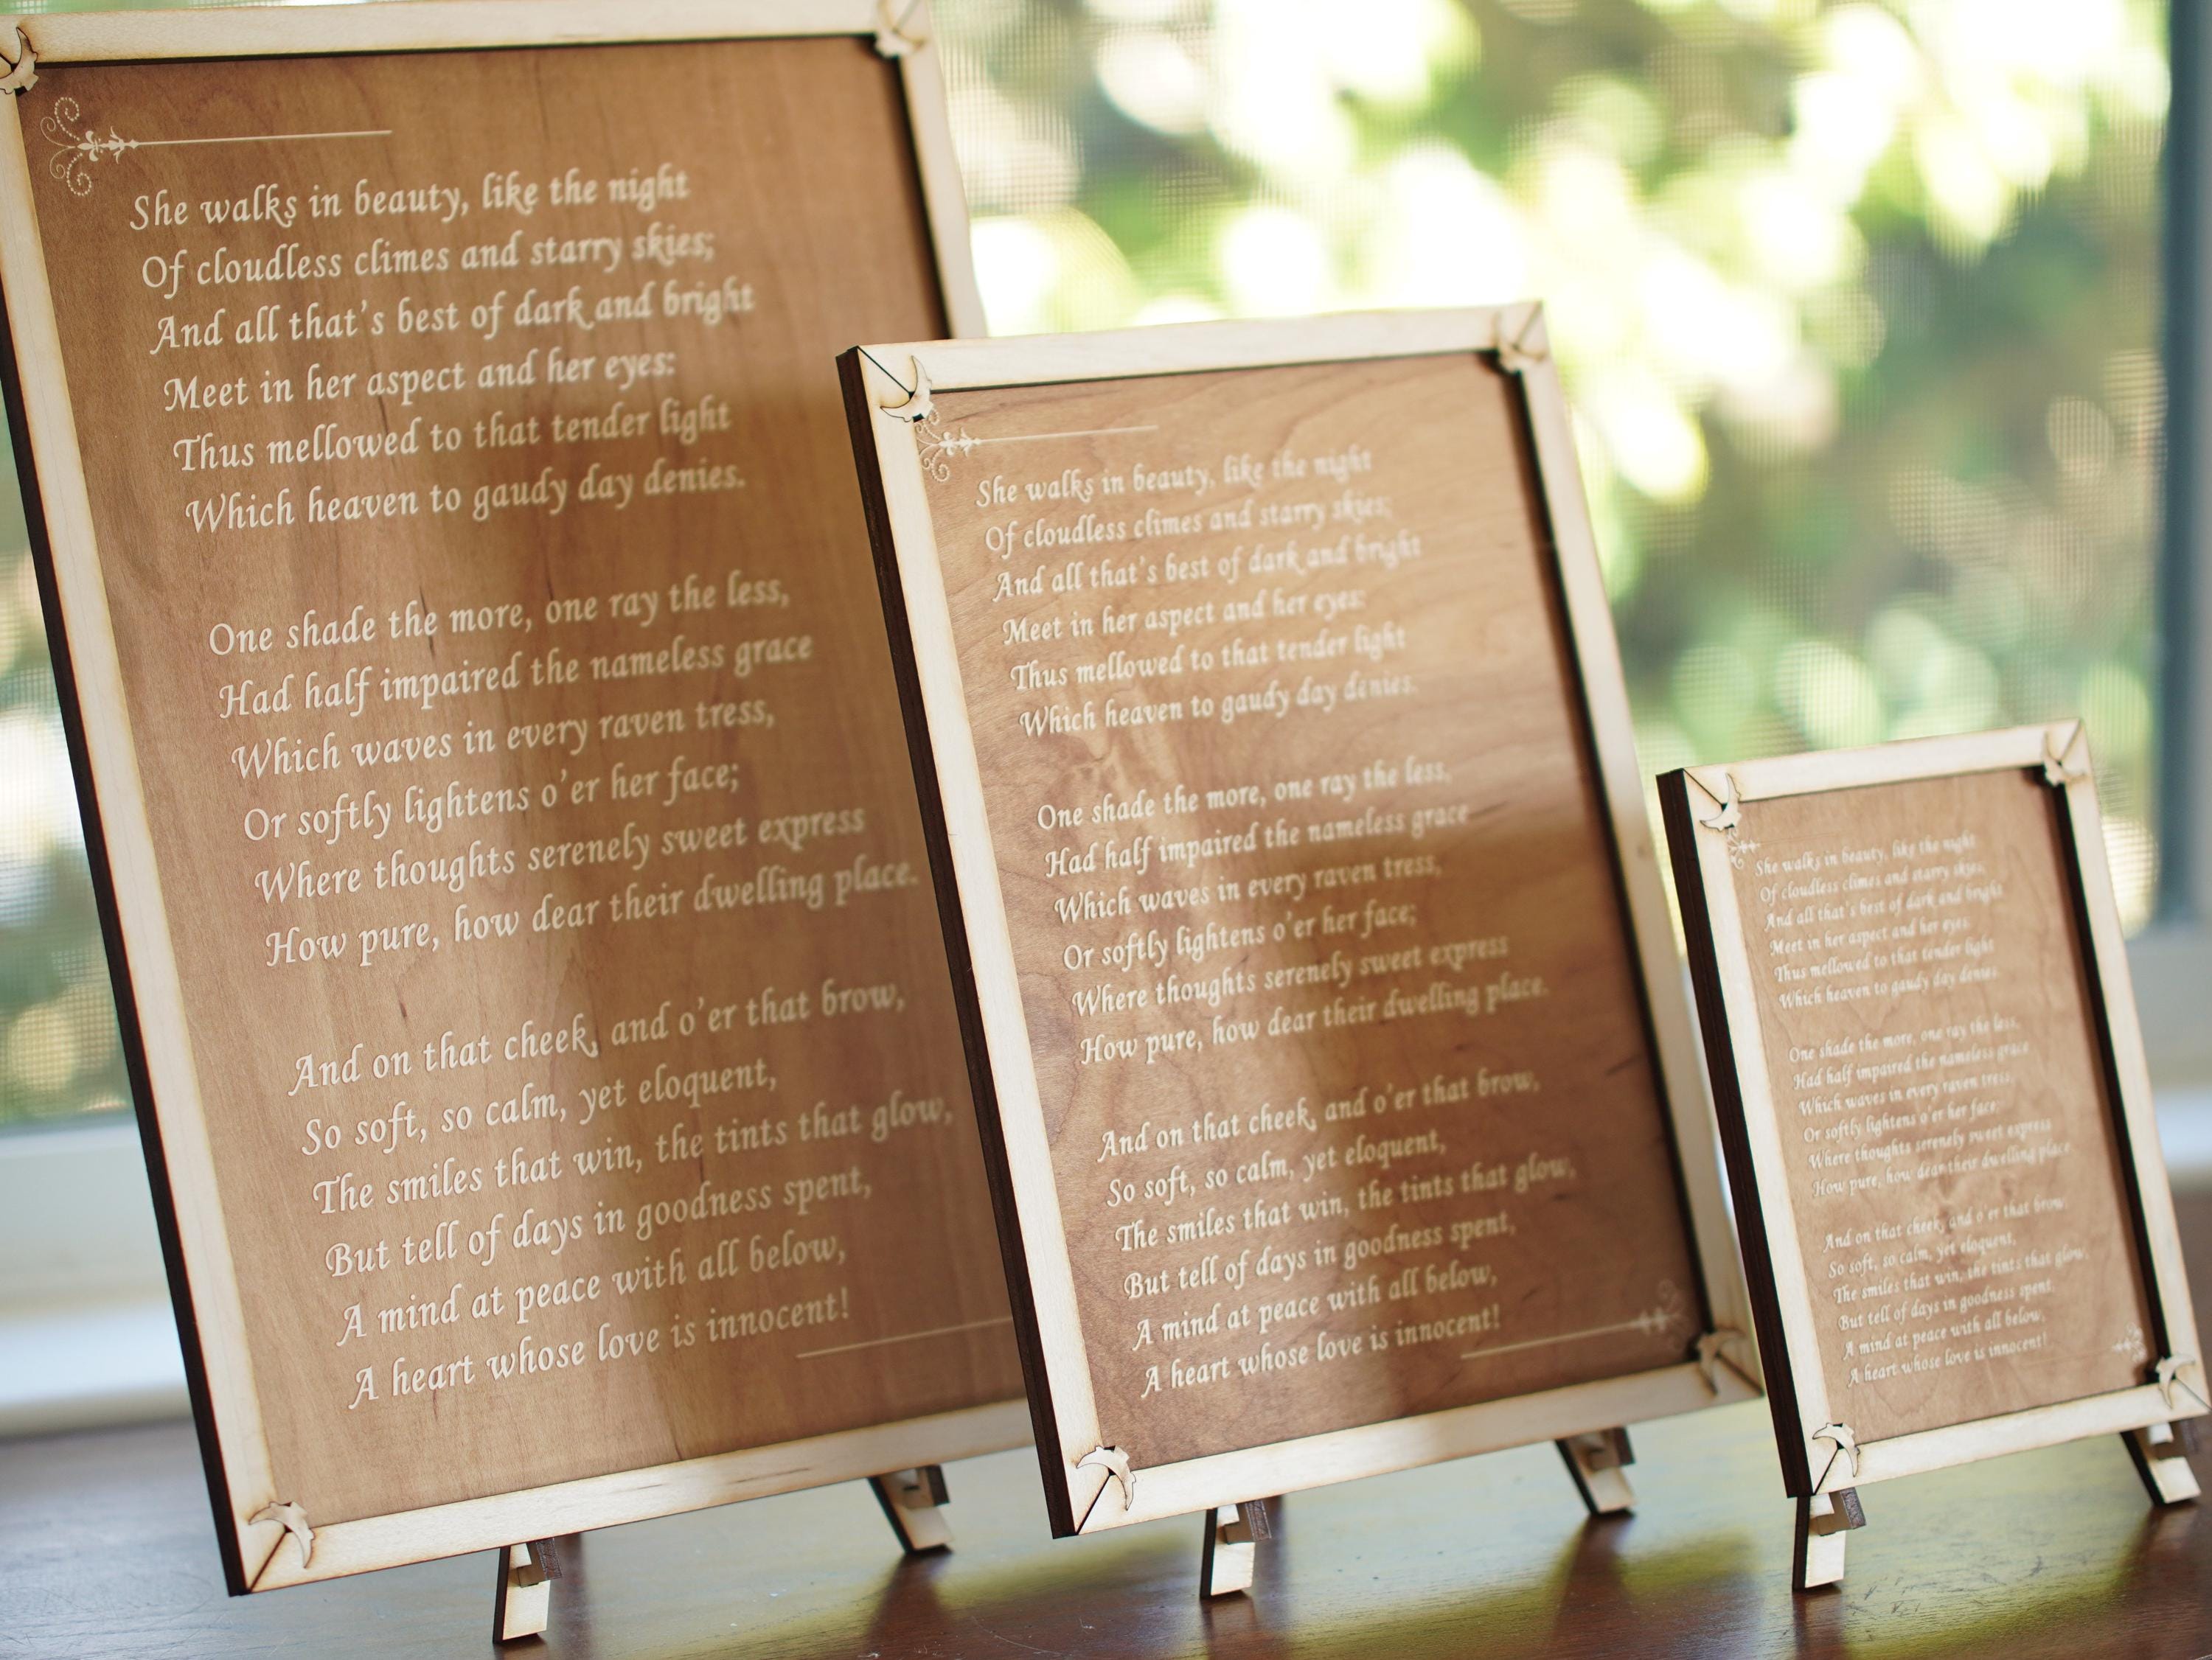 She walks in beauty, like the night
Of cloudless climes and starry skies;
And all that's best of dark and bright
Meet in her aspect and her eyes:
Thus mellowed to that tender light
Which heaven to gaudy day denies.
One shade the more, one ray the less,
Had half impaired the nameless grace
Which waves in every raven tress,
Or softly lightens o'er her face;
Where thoughts serenely sweet express
How pure, how dear their dwelling place.
And on that cheek, and o'er that brow,
So soft, so calm, yet eloquent,
The smiles that win, the tints that glow,
But tell of days in goodness spent,
A mind at peace with all below,
A heart whose love is innocent!
She walks in beauty, like the night
Of cloudless climes and starry skies;
And all that's best of dark and bright
Meet in her aspect and her eyes:
Thus mellowed to that tender light
Which heaven to gaudy day denies.
One shade the more, one ray the less,
Had half impaired the nameless grace
Which waves in every raven tress,
Or softly lightens o'er her face;
Where thoughts serenely sweet express
How pure, how dear their dwelling place.
And on that cheek, and o'er that brow,
So soft, so calm, yet eloquent,
The smiles that win, the tints that glow,
But tell of days in goodness spent,
A mind at peace with all below,
A heart whose love is innocent!
She walks in beauty, like the night
Of cloudless climes and starry skies;
And all that's best of dark and bright
Meet in her aspect and her eyes:
Thus mellowed to that tender light
Which heaven to gaudy day denies.
One shade the more, one ray the less,
Had half impaired the nameless grace
Which waves in every raven tress,
Or softly lightens o'er her face;
Where thoughts serenely sweet express
How pure, how dear their dwelling place.
And on that cheek, and o'er that brow,
So soft, so calm, yet eloquent,
The smiles that win, the tints that glow,
But tell of days in goodness spent,
A mind at peace with all below,
A heart whose love is innocent!